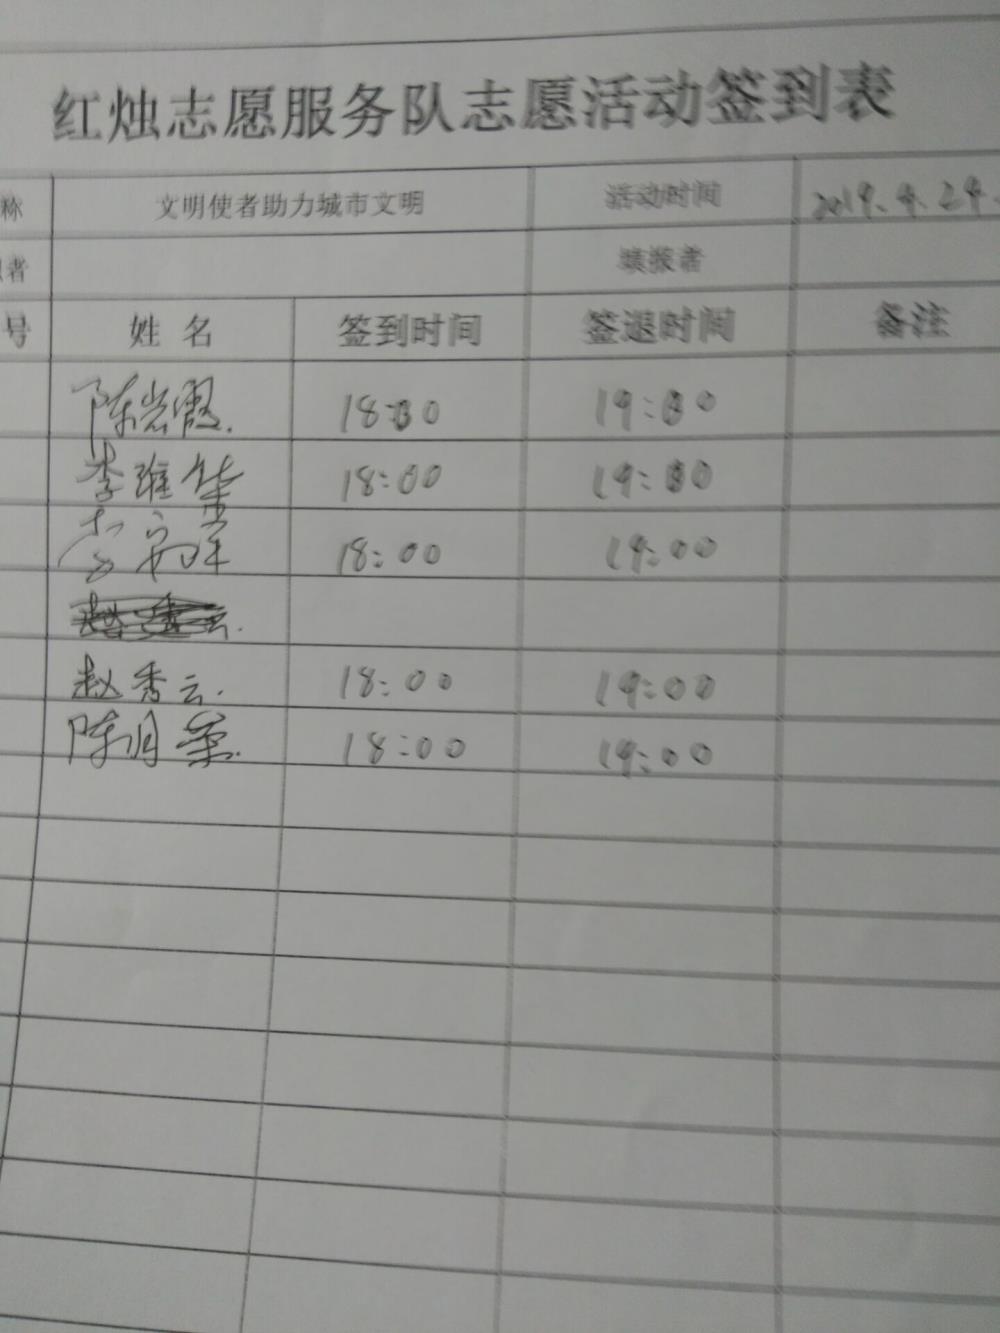 红烛志愿服务队志愿活动签到表
称 文明使者助力城市文明 活动时间 2019.4.24.
者 填报者
号 姓名 签到时间 签退时间 备注
陈岩霞. 18:00 19:00
李维华 18:00 19:00
18:00 19:00
赵秀云.
赵秀云. 18:00 19:00
陈月荣. 18:00 19:00